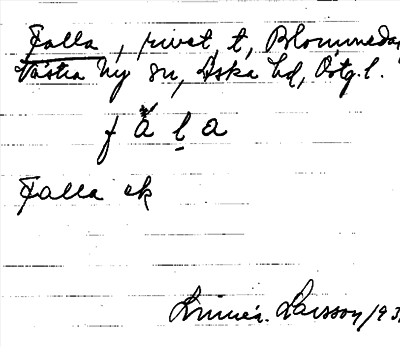 Falla, rivet, t, Blommeda
Västra Ny sn, Aska hd, Östg.l.
f å l a
Falla ek
Linnéa Larsson 193